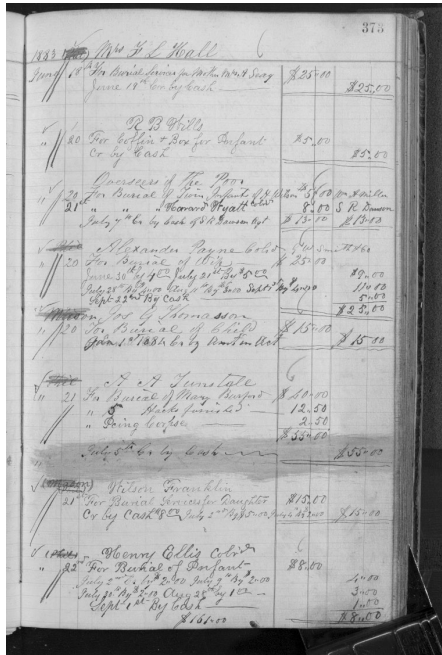 373
1883 Mrs F L Hall
June 18th For Burial Services for Mother Mrs H $25.00
June 19th Cr by Cash $25.00
R B Wills
" 20 For Coffin + Box for Infant $5.00
Cr by Cash $5.00
Overseers of the Poor
" 20 For Burial of Twin Infants of 5.00 Wm H Miller
21st " " " Howard Wyatt Cold 8.00 S R Dawson
July 7th Cr by Cash of S R Dawson Agt $13.00 $13.00
Alexander Payne Cold
" 20 For Burial of Wife $25.00
June 30th by 4.00 July 21st By $5.00 $9.00
July 28th By $4.00 Aug By $3.00 Sept By $4.00 11.00
Sept 22nd By Cash 5.00
$25.00
Jos G Thomasson
" 20 For Burial of Child $15.00
1st 1884 Cr by Amt on Act $15.00
A A Tunstale
" 21 For Burial of Mary $40.00
" 5 Hacks furnished 12.50
" Icing Corpse 2.50
$55.00
July 5th Cr by Cash $55.00
Wilson Franklin
21st For Burial Services for Daughter $15.00
Cr by Cash $8.00 July 2nd By $5.00 July By $2.00 $15.00
Henry Ellis Cold
" 22nd For Burial of Infant $8.00
July 2nd Cr by $2.00 July 9th By $2.00 4.00
July 30th By $2.00 Aug 28th by 1.00 3.00
Sept 1st By Cash 1.00
$161.00 $8.00